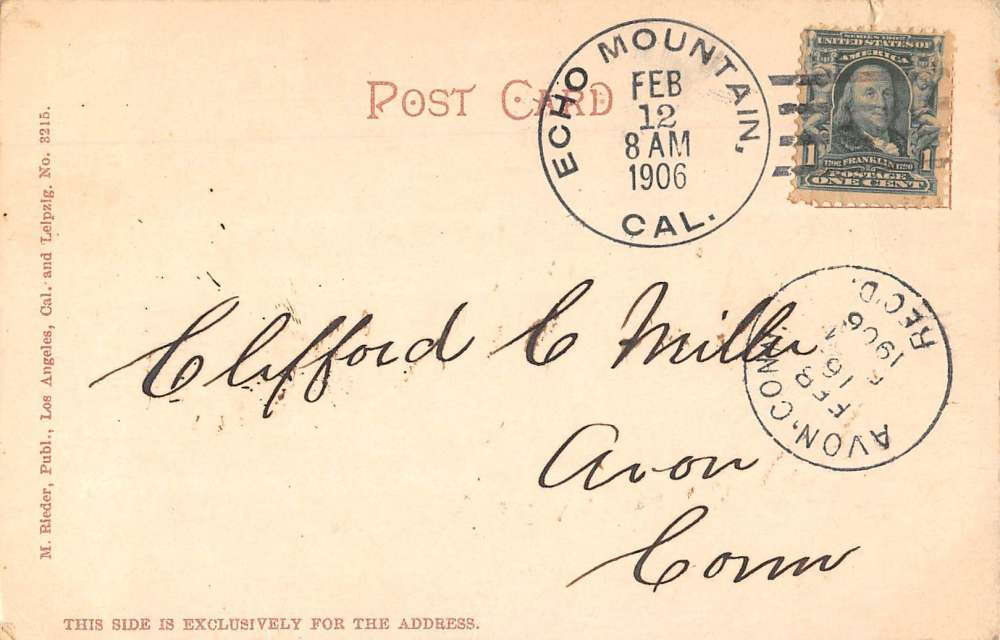 POST CARD
ECHO MOUNTAIN, CAL.
FEB
12
8 AM
1906
SERIES 1902
UNITED STATES OF
AMERICA
1 1
1706 FRANKLIN 1790
POSTAGE
ONE CENT
Clifford C Miller
Avon
Conn
AVON, CONN
FEB
16
1906
REC'D.
M. Rieder, Publ., Los Angeles, Cal. and Leipzig. No. 3215.
THIS SIDE IS EXCLUSIVELY FOR THE ADDRESS.